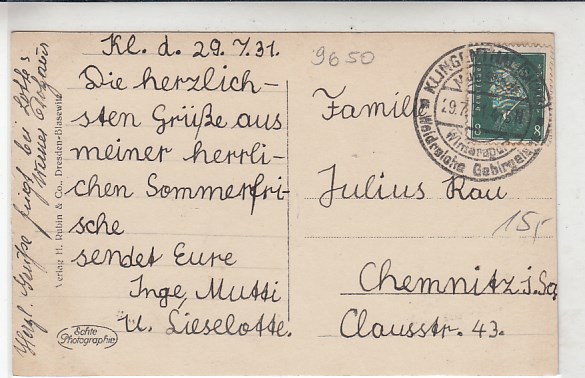 Kl. d. 29.7.31.
Die herzlich-
sten Grüße aus
meiner herrli-
chen Sommerfri-
sche
sendet Eure
Inge, Mutti
u. Lieselotte.
Herzl. Grüße
Werner
Verlag H. Rubin & Co., Dresden-Blasewitz
Echte
Photographie
9650
KLINGENTHAL
29.7.
Waldreiche Gebirgs
8
8
Familie
Julius Rau
15,-
Chemnitz i. Sa.
Clausstr. 43.